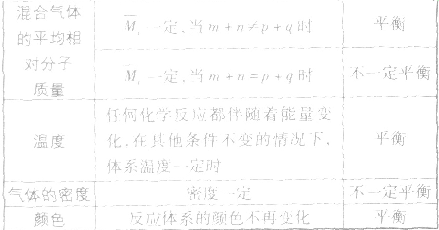 混合气体
的平均相
对分子
质量
M̄r一定,当m+n≠p+q时
平衡
M̄r一定,当m+n=p+q时
不一定平衡
温度
任何化学反应都伴随着能量变
化,在其他条件不变的情况下,
体系温度一定时
平衡
气体的密度
密度一定
不一定平衡
颜色
反应体系的颜色不再变化
平衡